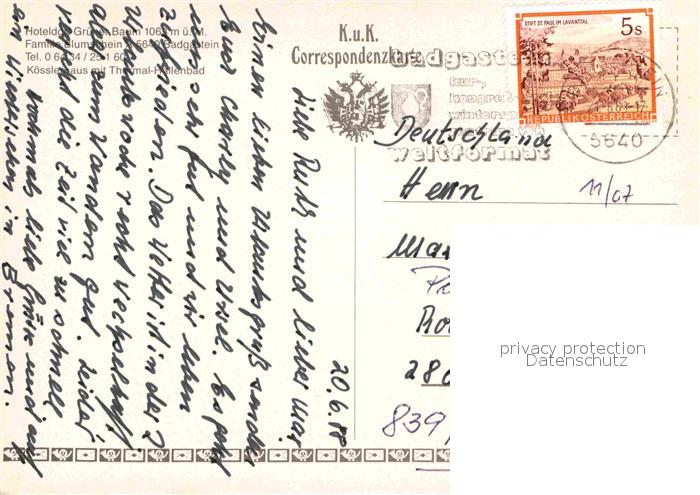 Hoteldorf Grüner Baum 1063 m ü.M.
Familie Blumschein A-5640 Badgastein
Tel. 0 64 34 / 25 1 60
Kösslerhaus mit Thermal-Hallenbad
K.u.K.
Correspondenzkarte
Badgastein
kur-,
kongreß-
wintersp
weltformat
STIFT ST. PAUL IM LAVANTTAL
5 s
REPUBLIK ÖSTERREICH
5640
20.6.88
Liebe Ruth und lieber Max
Einen lieben Urlaubsgruß senden
Euch Charly und Ursel. Es geht
uns sehr gut und wir leben
zufrieden. Das Wetter ist in der 2
Urlaubswoche recht wechselhaft
aber zum Wandern gut. Leider
vergeht die Zeit viel zu schnell
Nochmals liebe Grüße und auf
ein Wiedersehen in Bremen.
Deutschland
Herrn
11/07
280
839/
privacy protection
Datenschutz